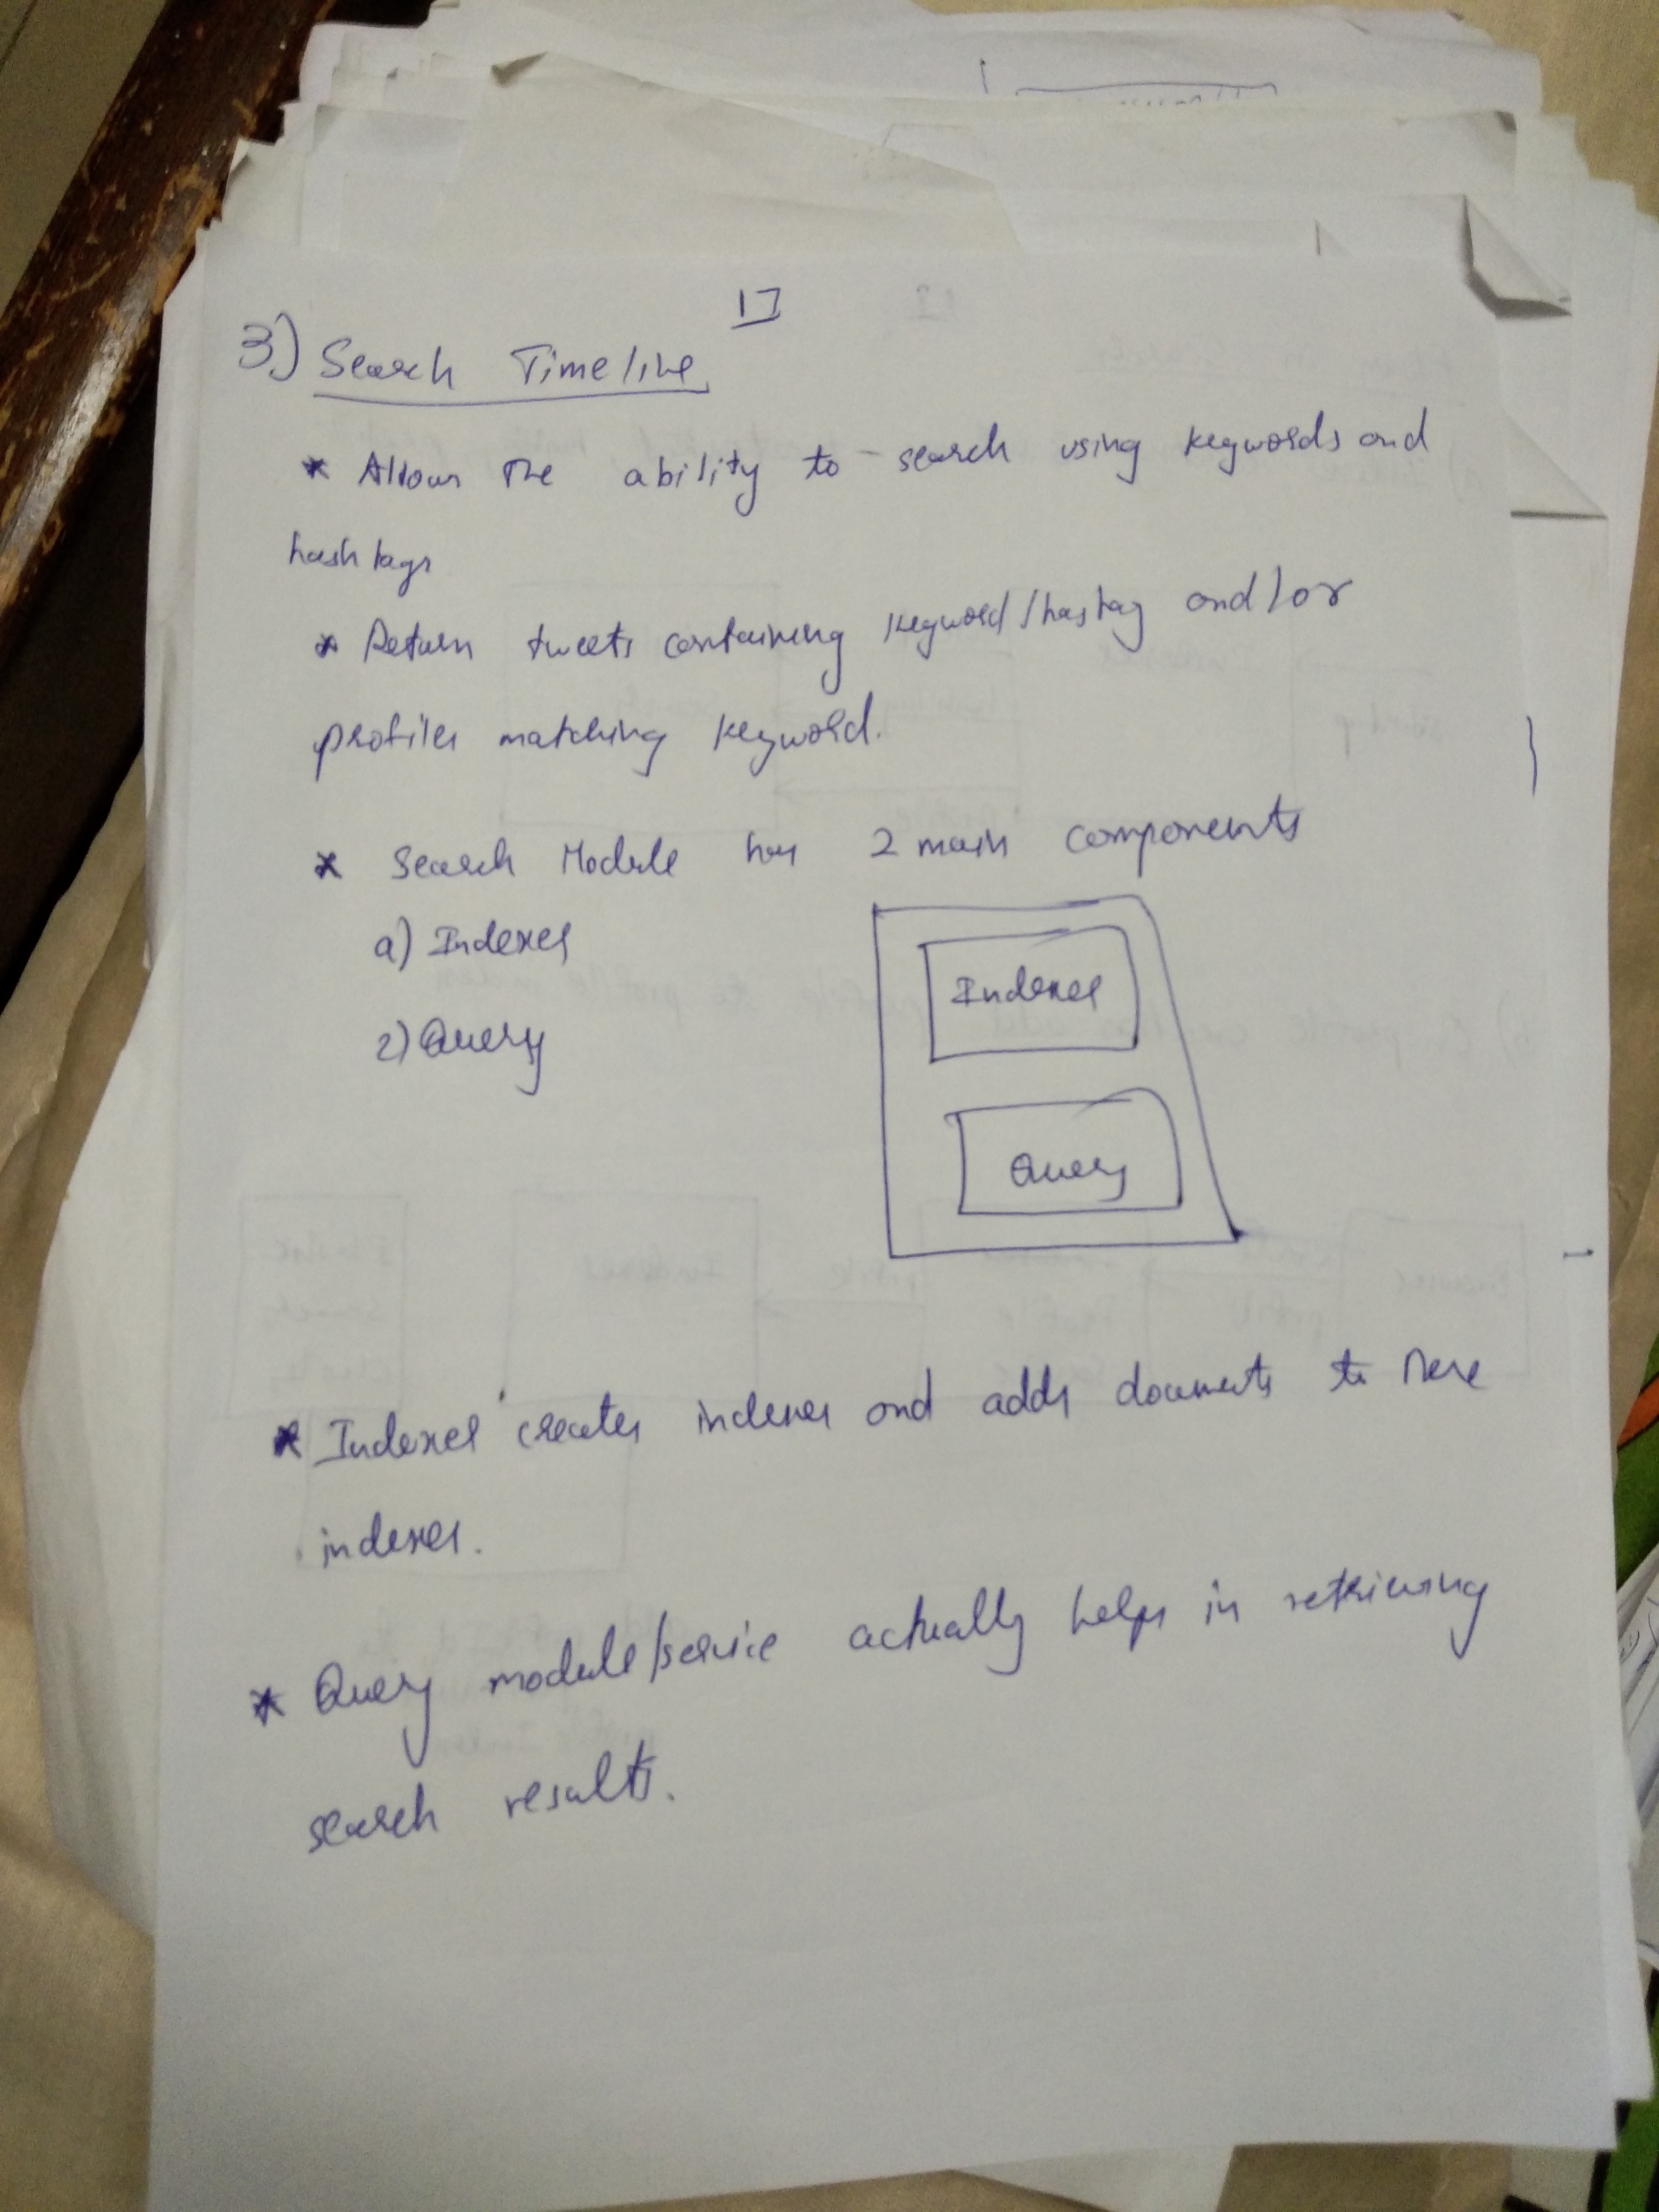 17
3.) Search Timeline
* Allows the ability to search using keywords and
hashtags
* Return tweets containing keyword/hastag and/or
profiles matching keyword.
* Search Module has 2 main components
a) Indexer
2) Query
Indexer
Query
* Indexer creates indexes and adds documents to these
indexes.
* Query module/service actually helps in retrieving
search results.